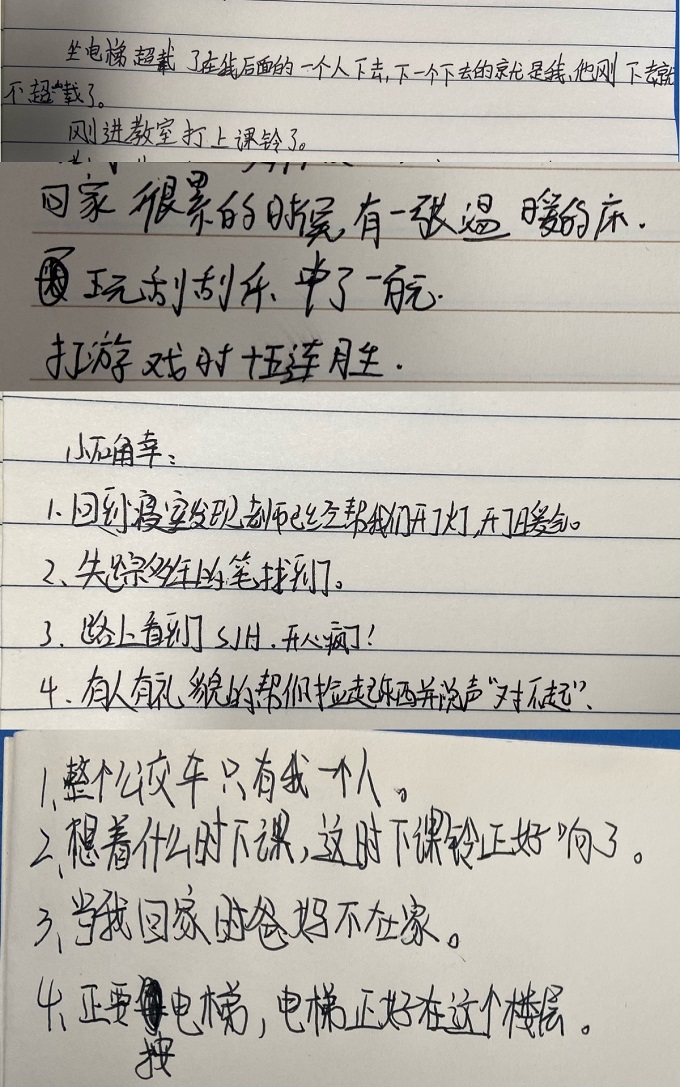 坐电梯超载了在我后面的一个人下去,下一个下去的就是我,他刚下去就
不超载了。
刚进教室打上课铃了。
回家很累的时候有一张温暖的床.
玩刮刮乐、中了一百元.
打游戏时十五连胜.
小确幸:
1.回到寝室发现老师已经帮我们开了灯,开了暖气。
2、失踪多年的笔找到了。
3、路上看到了SJH.开心疯了!
4、有人有礼貌的帮你捡起东西并说声“对不起”.
1、整个公交车只有我一个人。
2、想着什么时下课,这时下课铃正好响了。
3、当我回家时爸妈不在家。
4、正要按电梯,电梯正好在这个楼层。